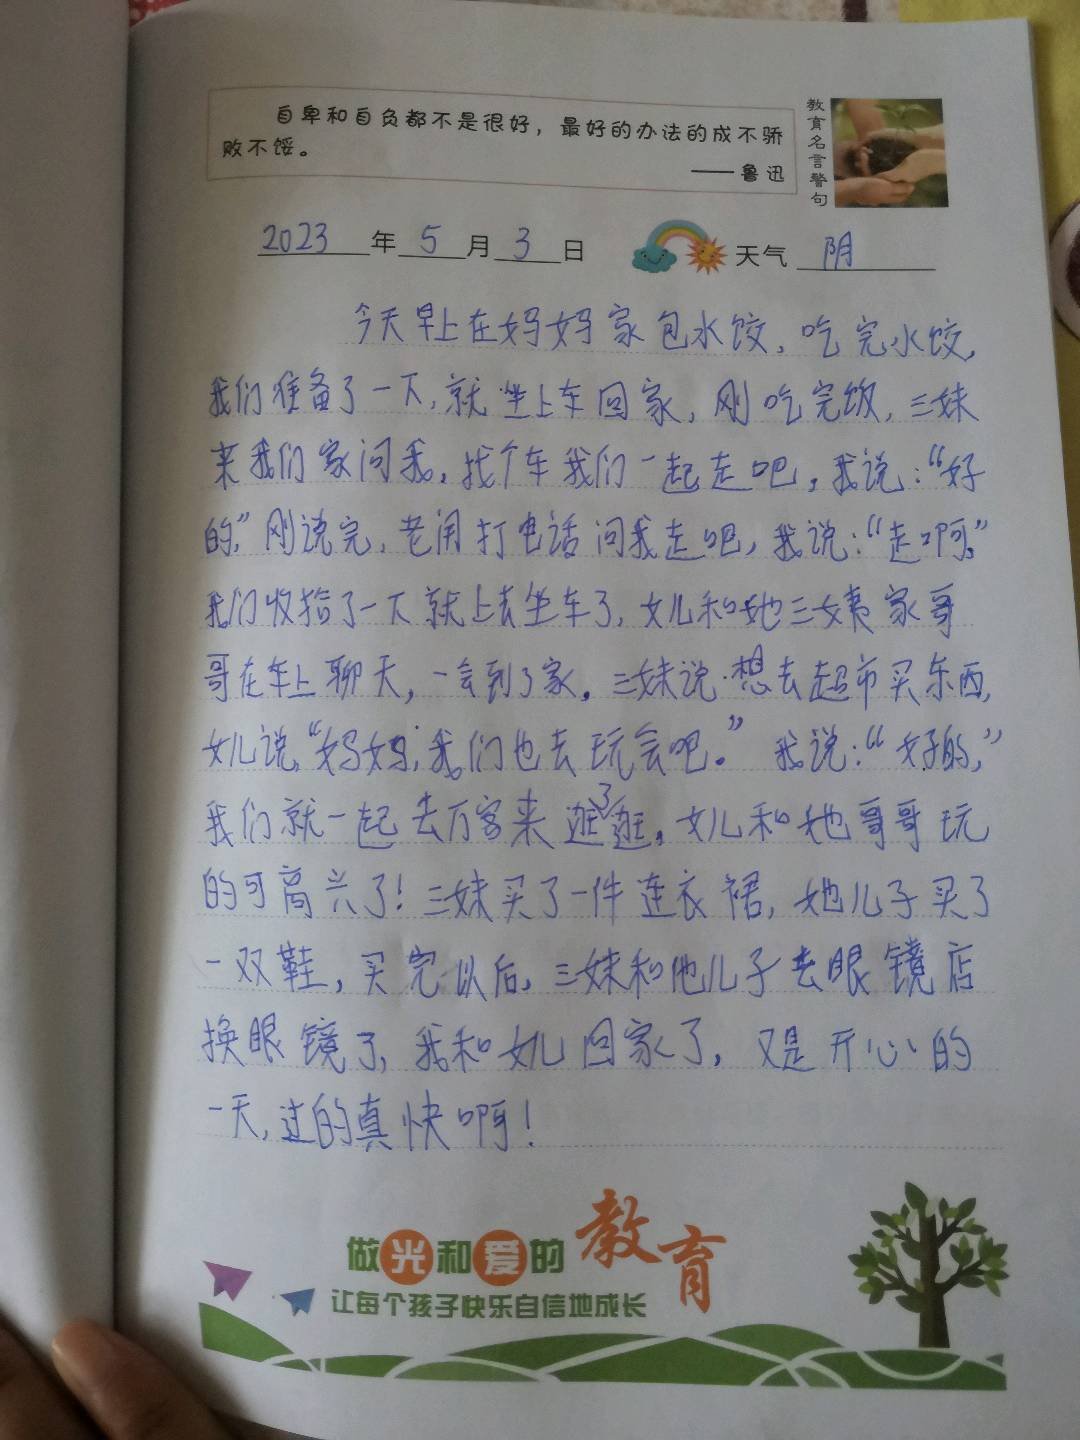 自卑和自负都不是很好，最好的办法的成不骄
败不馁。
——鲁迅
教育名言警句
2023年5月3日 天气 阴
今天早上在妈妈家包水饺，吃完水饺，
我们准备了一下，就坐上车回家，刚吃完饭，三妹
来我们家问我，找个车我们一起走吧，我说：“好
的，”刚说完，老闲打电话问我走吧，我说：“走啊。”
我们收拾了一下就上去坐车了，女儿和她三姨家哥
哥在车上聊天，一会到了家。三妹说想去超市买东西，
女儿说，“妈妈，我们也去玩会吧。”我说：“好的，”
我们就一起去万客来逛了逛，女儿和她哥哥玩
的可高兴了！三妹买了一件连衣裙，她儿子买了
一双鞋，买完以后，三妹和他儿子去眼镜店
换眼镜了，我和女儿回家了，又是开心的
一天，过的真快啊！
做光和爱的教育
让每个孩子快乐自信地成长